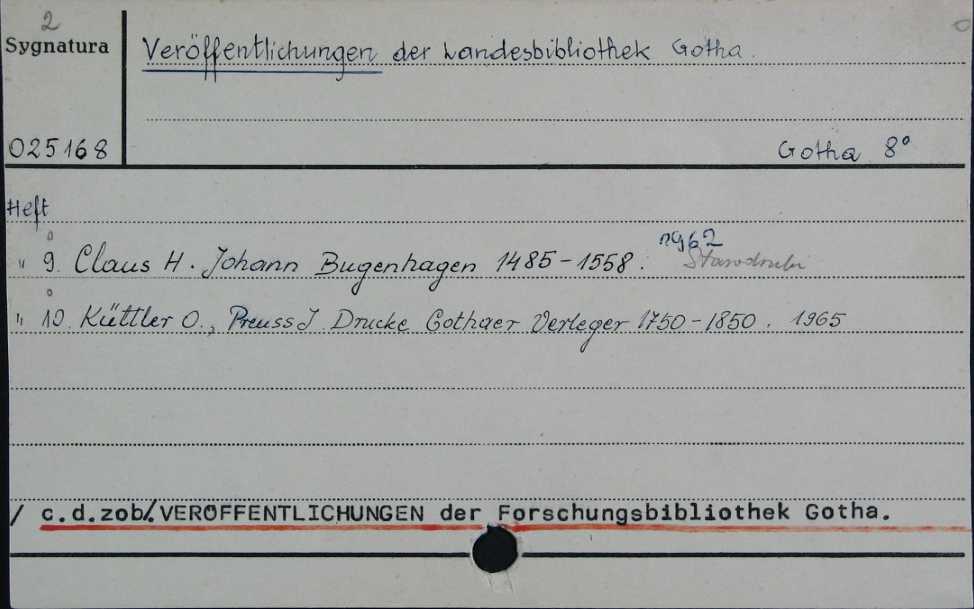 2
Sygnatura
Veröffentlichungen der Landesbibliothek Gotha.
025168
Gotha 8°
Heft
" 9. Claus H. Johann Bugenhagen 1485-1558. 1962
Starodruki
" 10. Küttler O., Preuss J. Drucke Gothaer Verleger 1750-1850. 1965
/ c.d.zob/. VERÖFFENTLICHUNGEN der Forschungsbibliothek Gotha.